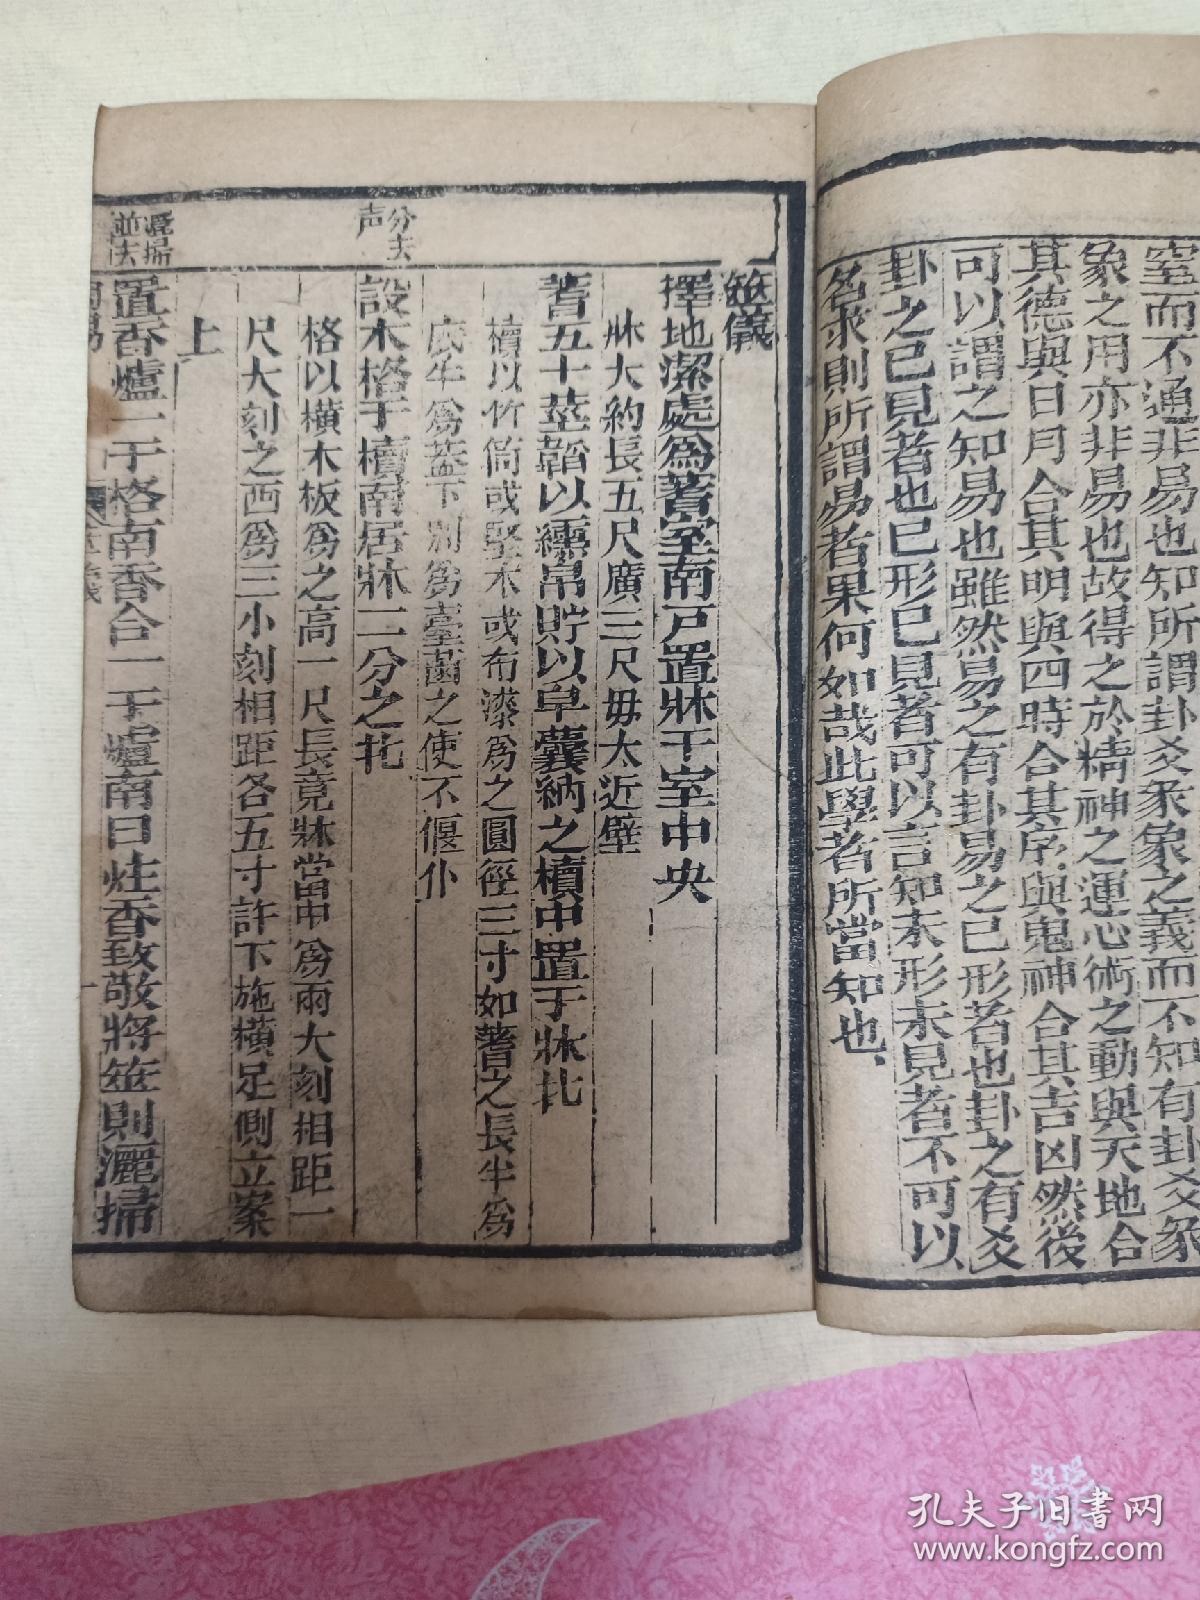 窒而不通非易也知所謂卦爻彖象之義而不知有卦爻彖
象之用亦非易也故得之於精神之運心術之動與天地合
其德與日月合其明與四時合其序與鬼神合其吉凶然後
可以謂之知易也雖然易之有卦易之已形者也卦之有爻
卦之已見者也已形已見者可以言知未形未見者不可以
名求則所謂易者果何如哉此學者所當知也
筮儀
擇地潔處爲蓍室南戸置牀于室中央
牀大約長五尺廣三尺毋太近壁
蓍五十莖韜以纁帛貯以皁囊納之櫝中置于牀北
櫝以竹筒或堅木或布漆爲之圓徑三寸如蓍之長半爲
底半爲蓋下别爲臺函之使不偃仆
分去
声
設木格于櫝南居牀二分之北
格以横木板爲之高一尺長竟牀當中爲兩大刻相距一
尺大刻之西爲三小刻相距各五寸許下施横足側立案
上
掃
並去
置香爐一于格南香合一于爐南日炷香致敬將筮則灑掃
孔夫子旧书网
www.kongfz.com